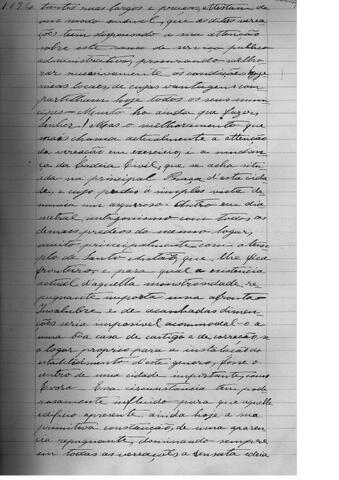 mentos ruas largos e praças, attestam de
um modo que as ditas verea
ções tem dispensado a sua attenção
sobre este ramo de serviço publico
administrativo, procurando melho
rar as condições hygie
nicas locaes, de cujas vantagens com
partilham hoje todos os seus muni
cipes. Muito ha ainda que fazer,
Senhor! Mas o melhoramento que
mais chama actualmente a attenção
da vereação em exercicio, é a mudan
ça da Cadeia Civil, que se acha situ
ada na principal Praça d'esta cida
de, e cujo predio á simples vista de
nuncia um Antro em dia
metral antagonismo com todos os
demais predios do mesmo logar,
muito principalmente com o tem
plo de Santo Antão, que lhe fica
fronteiro, e para o qual a existencia
actual d'aquella monstrosidade re
pugnante importa uma afronta.
Insalubre e de acanhadas dimen
ções seria impossivel acommodal-o a
uma boa casa de castigo e de correcção, n
o logar proprio para a instalação
estabelecimento d'este genero, fosse o
centro de uma cidade importante, como
Evora. Esta circunstancia tem pode
rosamente influido para que aquelle
edificio apresente ainda hoje a sua
primitiva construcção, de uma aparen
cia repugnante, dominando sempre
em todas as vereações, a sensata ideia